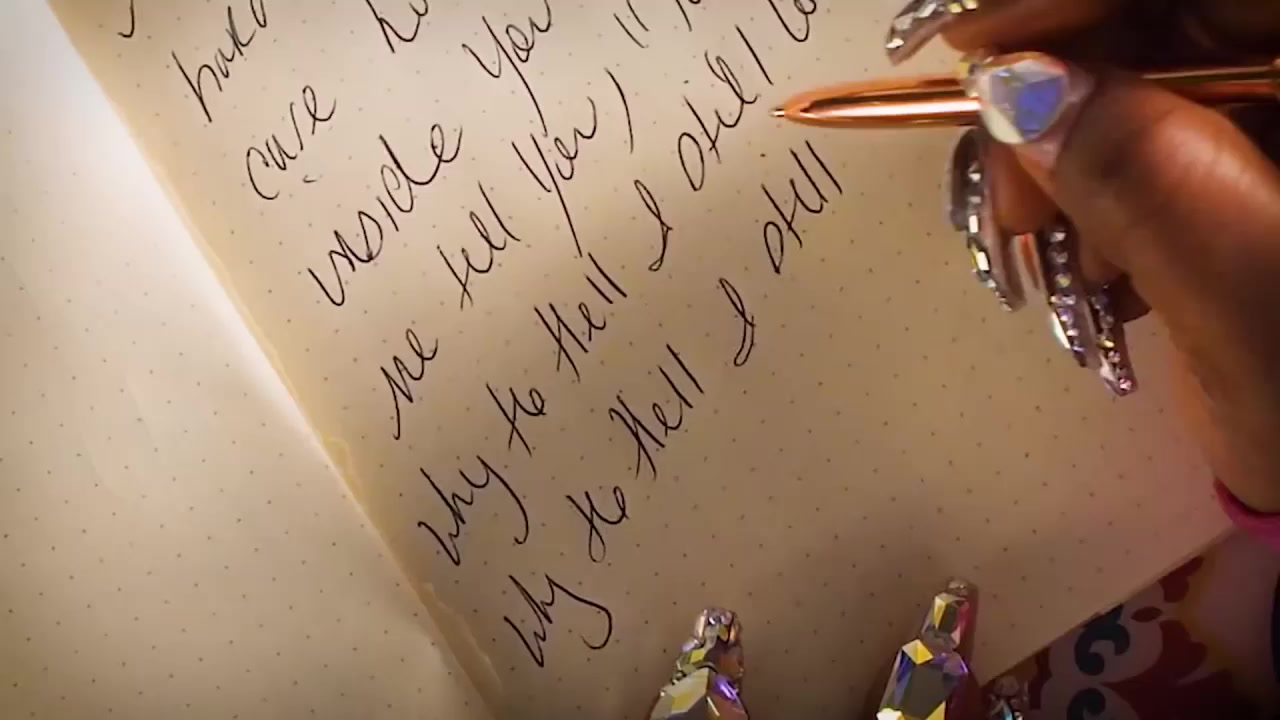 care
inside you
me tell you,
why the Hell I still
why the Hell I still